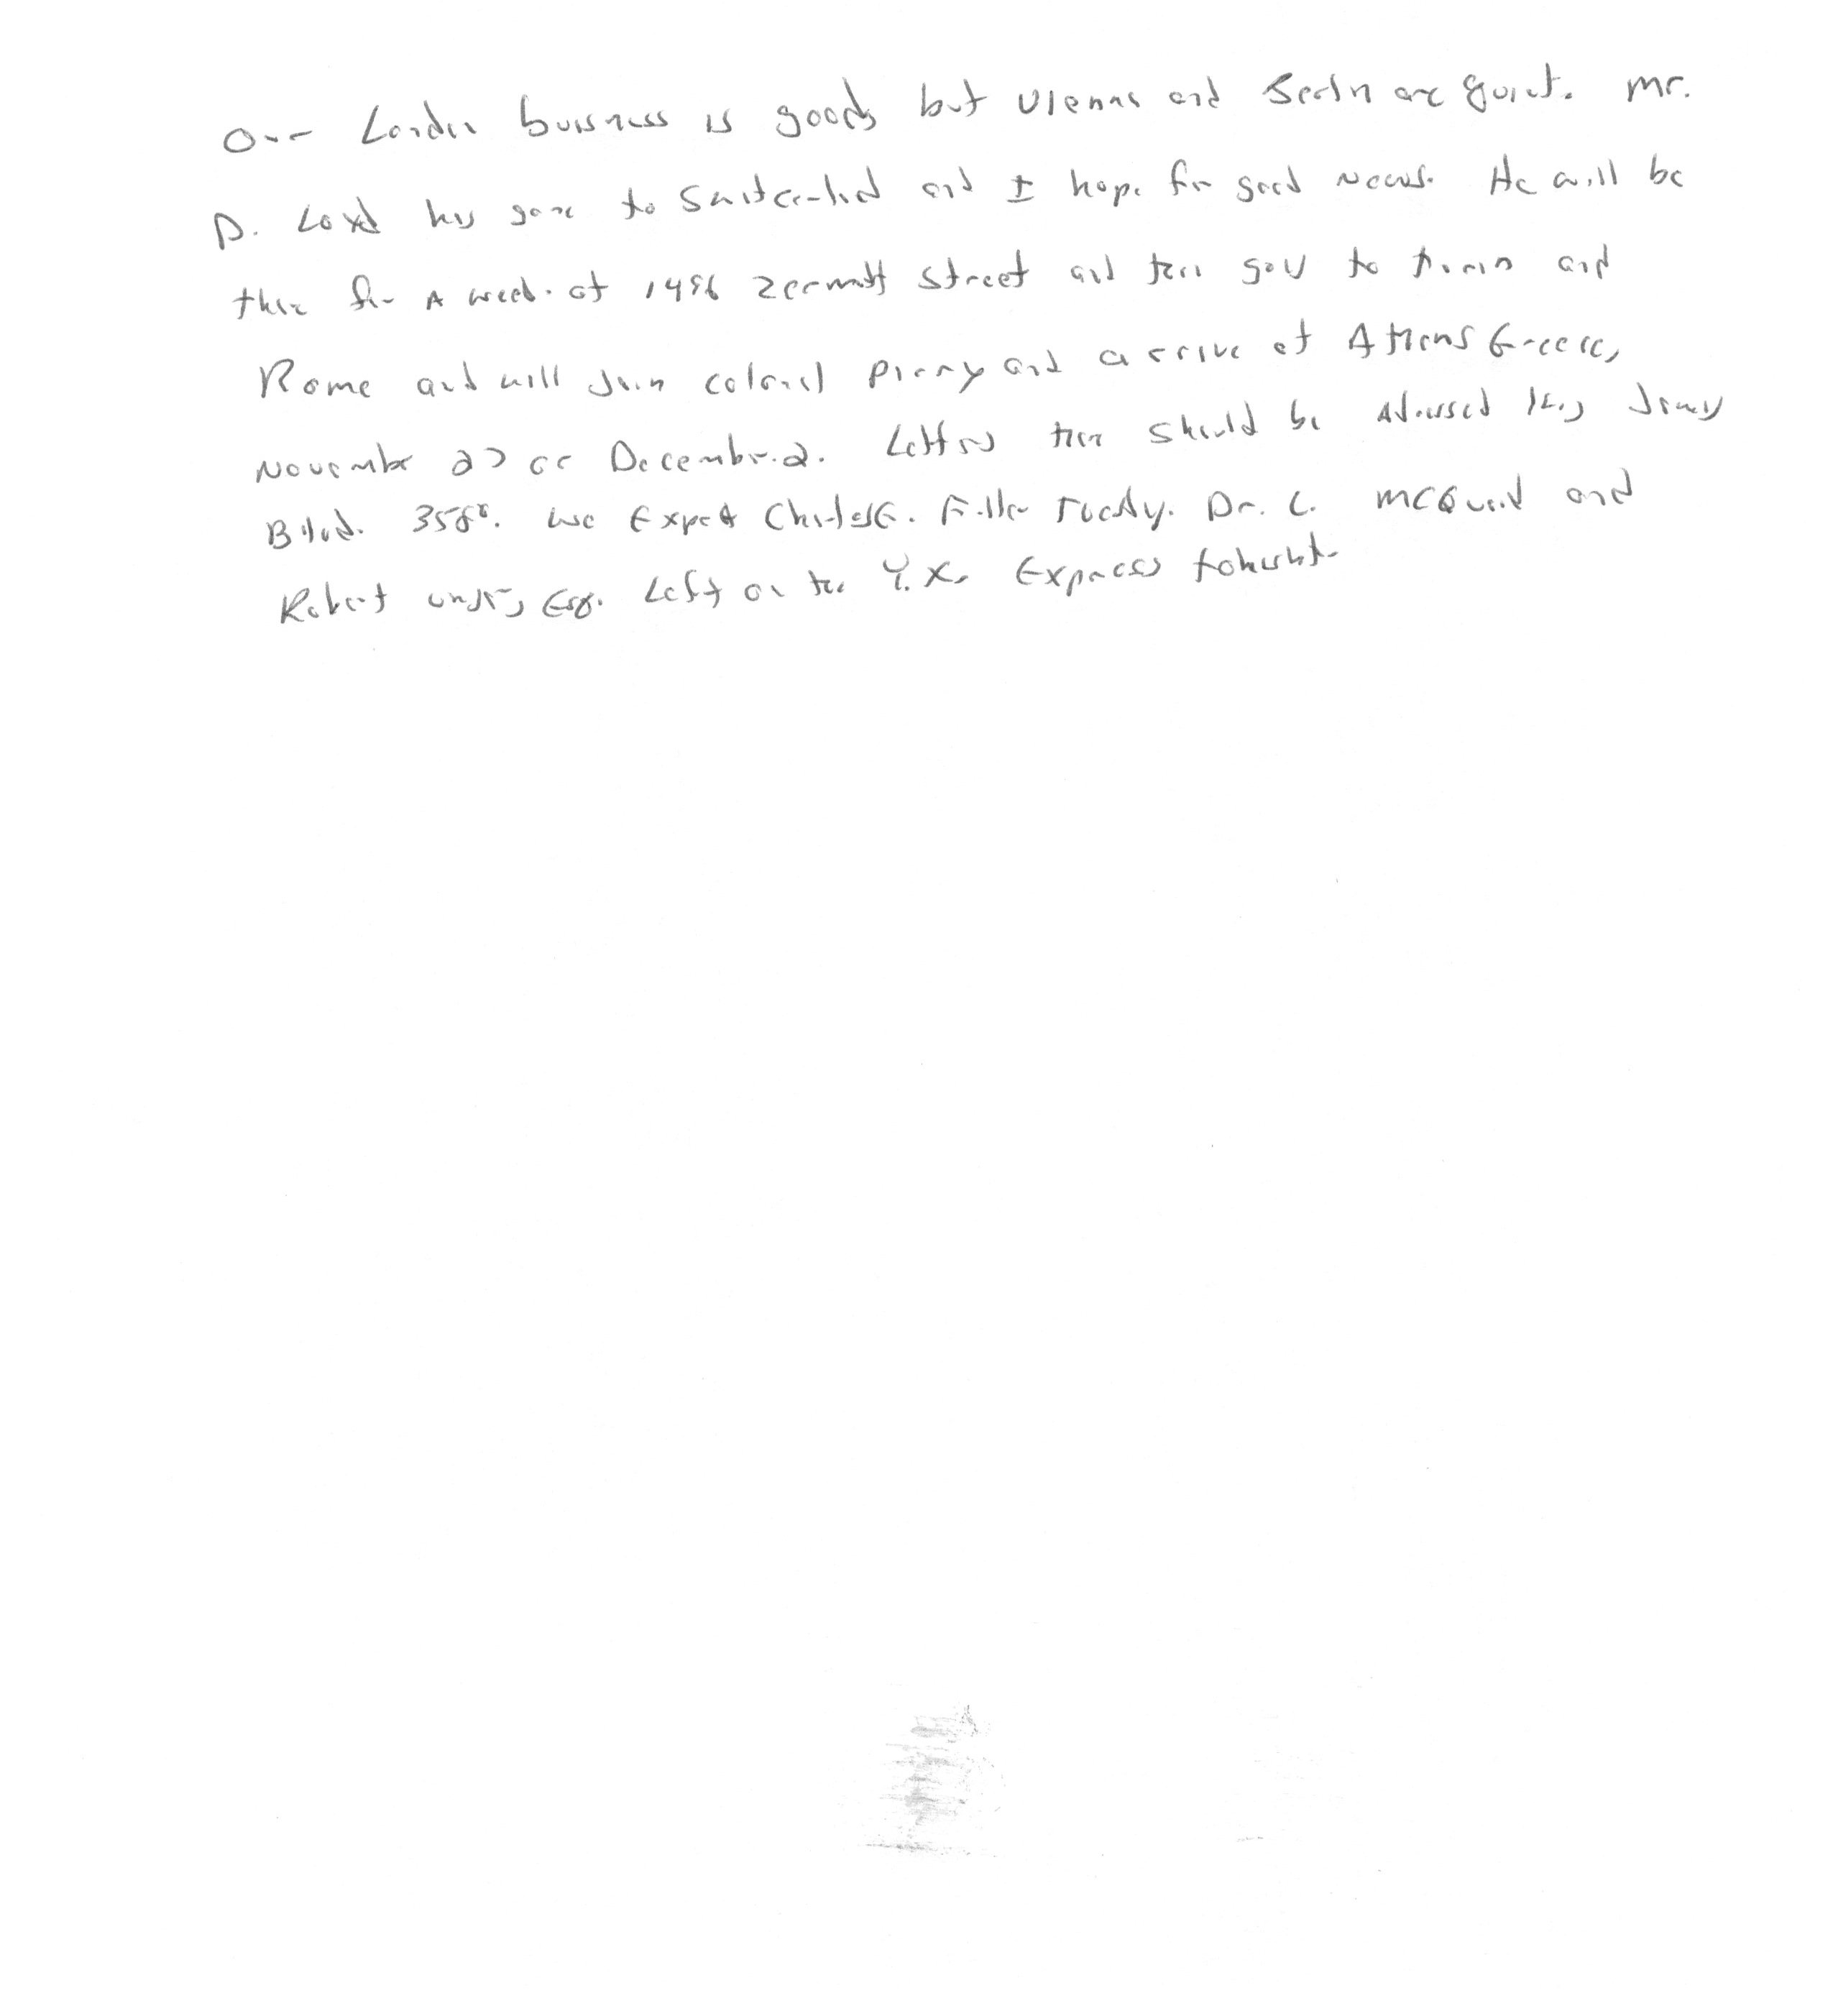 Our London buisness is good, but Vienna and Berlin are quiet. Mr.
D. Loyd has gone to Switzerland and I hope for good news. He will be
there for a week at 1496 Zermott Street and then goes to Turin and
Rome and will Join colonel Parry and arrive at Athens Greece,
November 27 or December 2. Letters there should be adressed King James
Blvd. 3580. We Expect Charles E. Fuller Tuesday. Dr. L. McQuaid and
Robert Unger, Esq. Left on the Y.X. Express tonight.